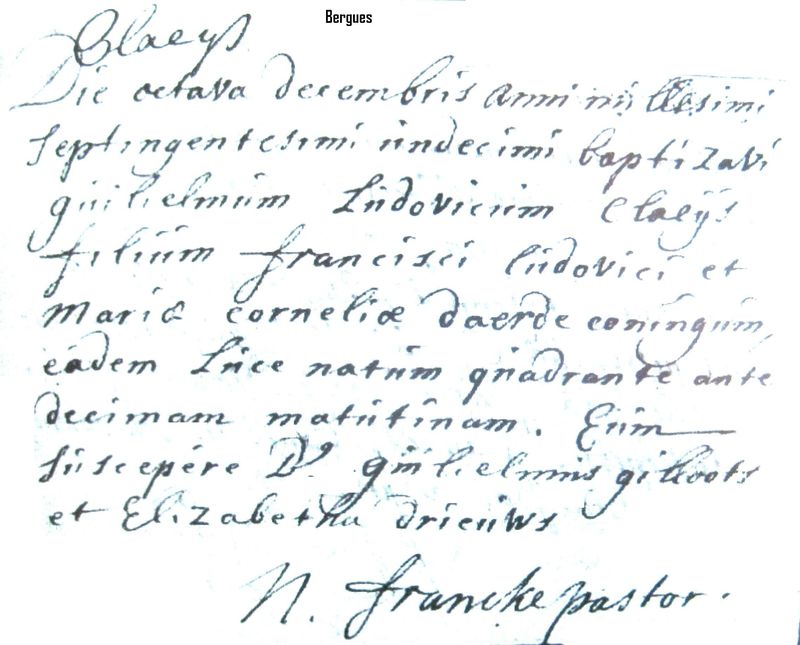 Bergues
Claeys
Die octava decembris anni millesimi
septingentesimi undecimi baptizavi
guilielmum Ludovicum Claeÿs
filium francisci ludovici et
Mariæ corneliæ daerde coningum,
eadem Luce natum quadrante ante
decimam matutinam. Eum
suscepére D⁹ guilielmus gilloots
et Elizabetha drieuws
N. francke pastor.